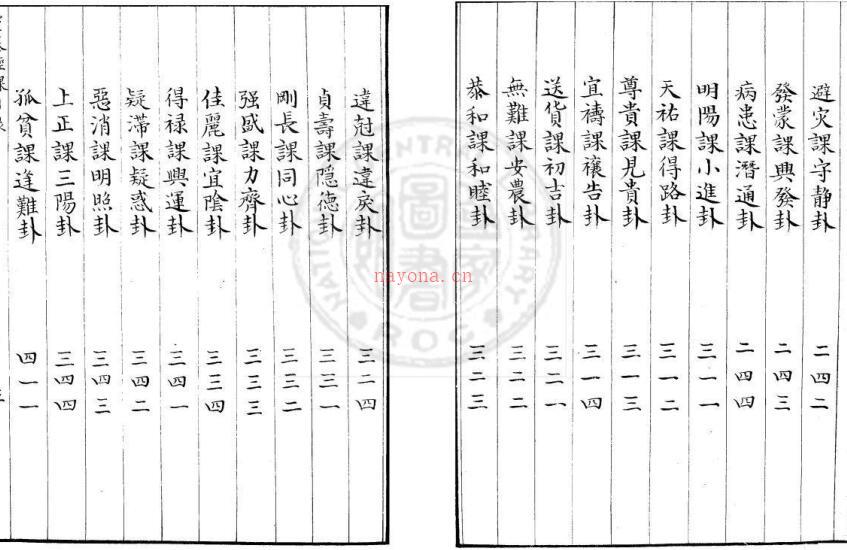 避灾課守静卦 二四二
發蒙課興發卦 二四三
病患課潛通卦 二四四
明陽課小進卦 三一一
天祐課得路卦 三一二
尊貴課見貴卦 三一三
宜禱課禳告卦 三一四
送貨課初吉卦 三二一
無難課安農卦 三二二
恭和課和睦卦 三二三
違冦課違戾卦 三二四
貞壽課隱徳卦 三三一
剛長課同心卦 三三二
强盛課力齊卦 三三三
佳麗課宜陰卦 三三四
得禄課興運卦 三四一
疑滯課疑惑卦 三四二
惡消課明照卦 三四三
上正課三陽卦 三四四
孤貧課逢難卦 四一一
NATIONAL CENTRAL LIBRARY
ROC
nayona.cn